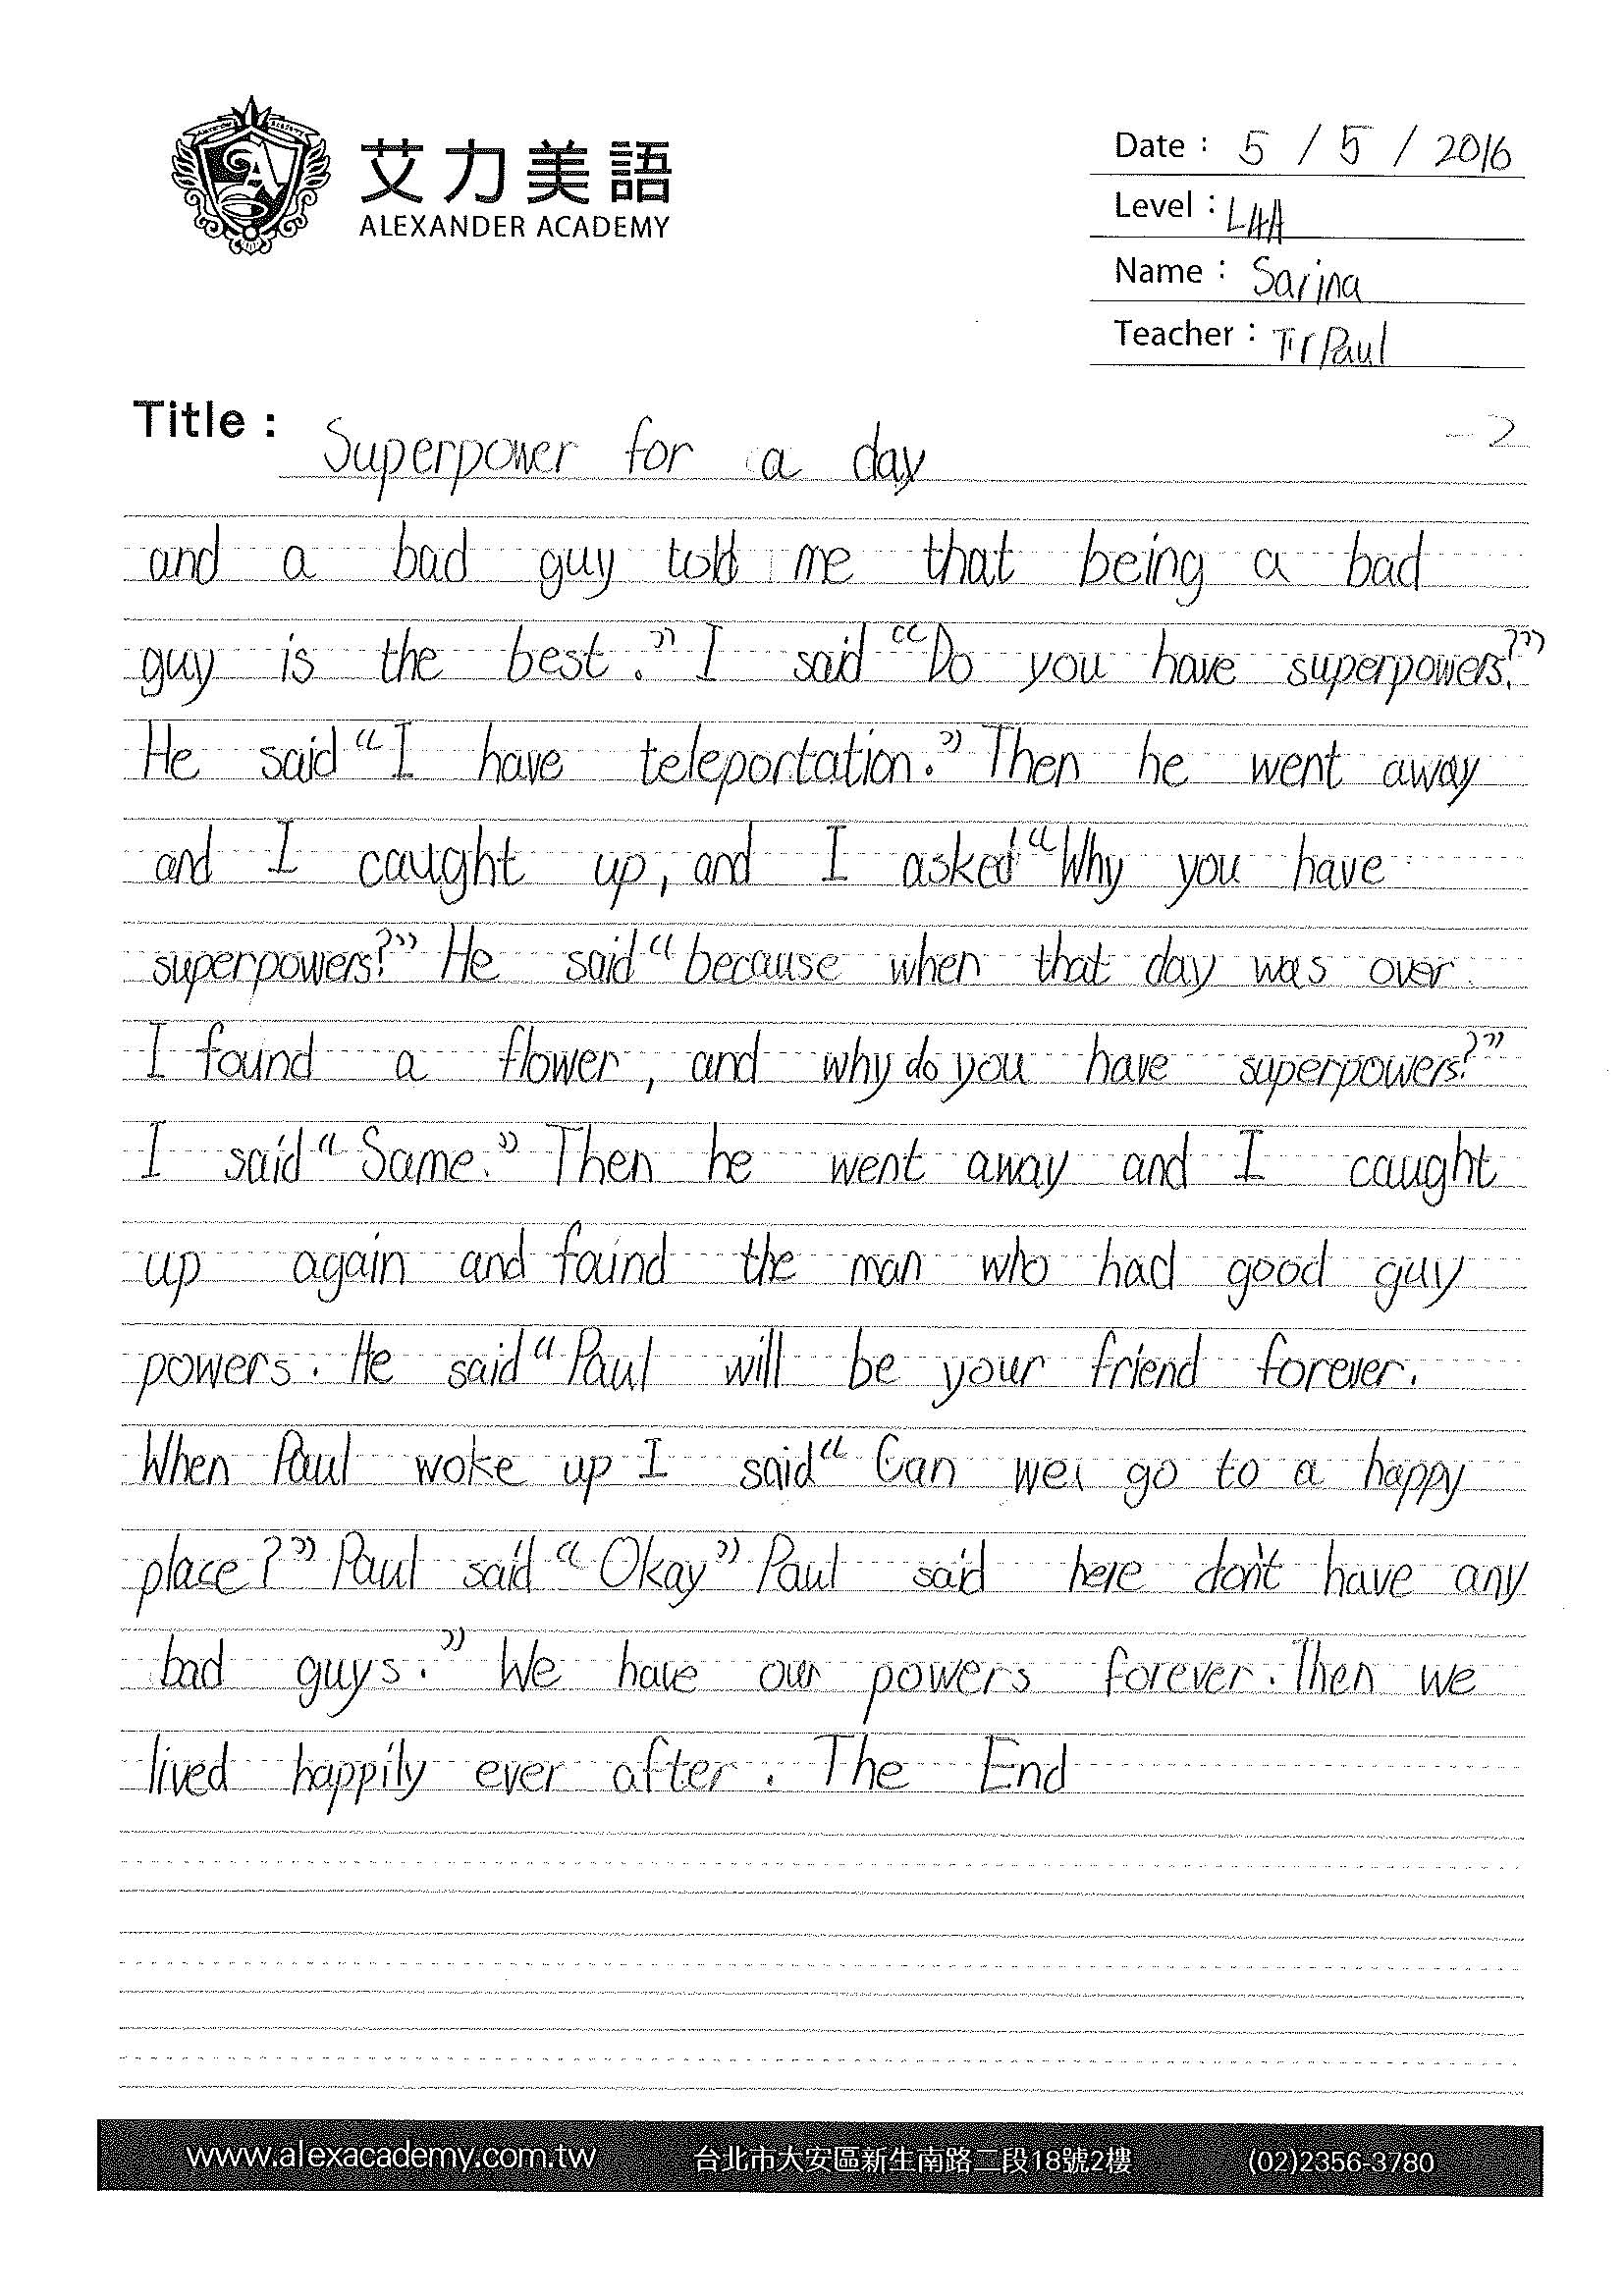 艾力美語
ALEXANDER ACADEMY
Date : 5 / 5 / 2016
Level : L4A
Name : Sarina
Teacher : Tr Paul
Title : Superpower for a day
- 2
and a bad guy told me that being a bad
guy is the best." I said "Do you have superpowers?"
He said "I have teleportation." Then he went away
and I caught up, and I asked "Why you have
superpowers?" He said "because when that day was over
I found a flower, and why do you have superpowers?"
I said "Same." Then he went away and I caught
up again and found the man who had good guy
powers. He said "Paul will be your friend forever.
When Paul woke up I said "Can we go to a happy
place?" Paul said "Okay" Paul said here don't have any
bad guys." We have our powers forever. Then we
lived happily ever after. The End
www.alexacademy.com.tw 台北市大安區新生南路二段18號2樓 (02)2356-3780